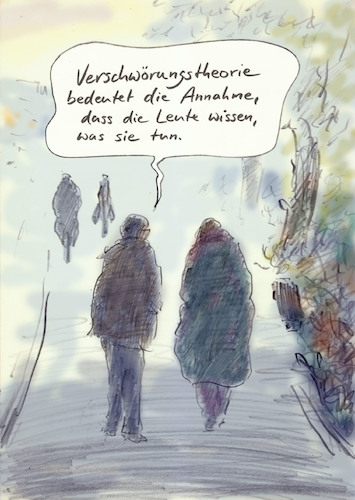 Verschwörungstheorie
bedeutet die Annahme,
dass die Leute wissen,
was sie tun.